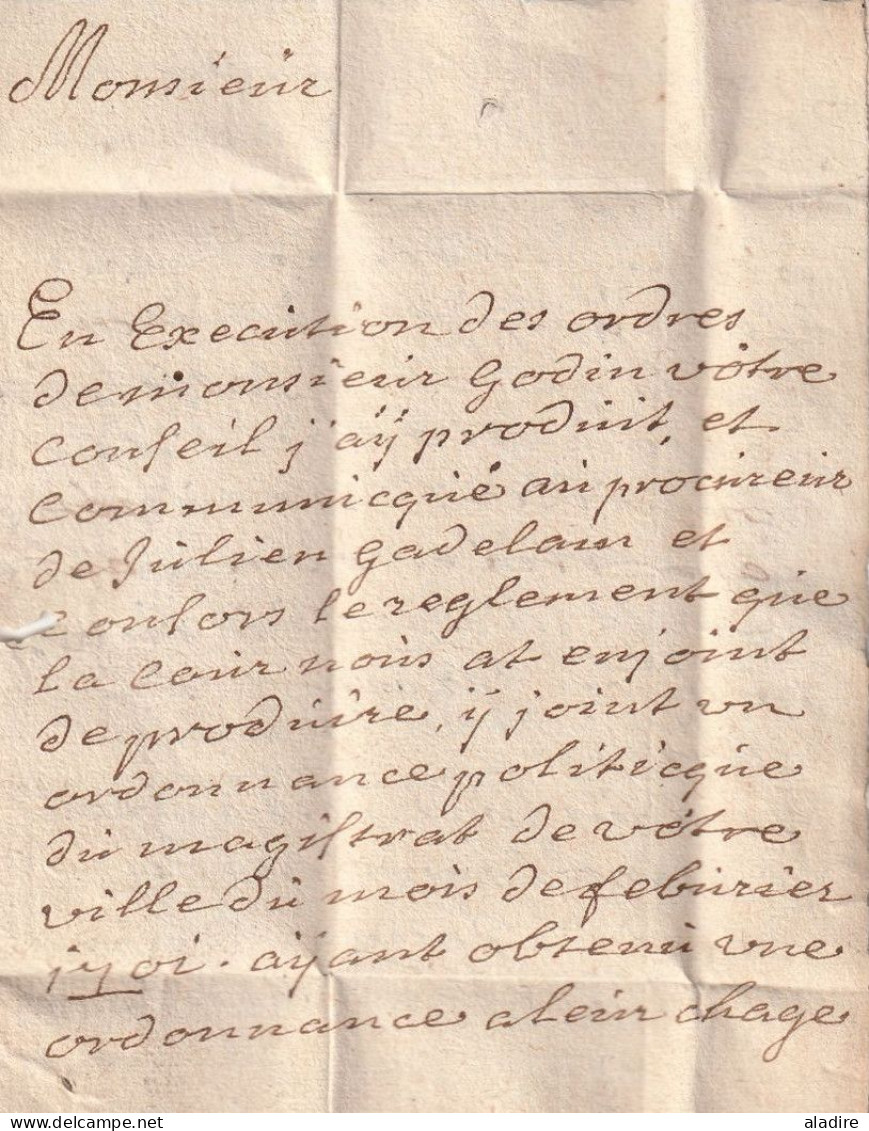 Monsieur
En Execution des ordres
de monsieur Godin vôtre
Conseil j'aÿ produit, et
Communicqué au procureur
de Julien Gadelaur et
Consors le reglement que
la Cour nous at enjoint
de produire, ÿ joint un
ordonnance politicque
du magistrat de vôtre
ville du mois de feburier
1701. aÿant obtenu une
ordonnance a leur chage
aladire